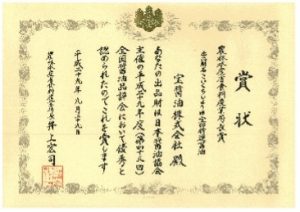 賞状
農林水産省食料産業局長賞
宝醤油株式会社 殿
あなたの出品財は日本醤油協会
主催の平成二十九年度(第四十五回)
全国醤油品評会において優秀と
認められたのでこれを賞します
平成二十九年
農林水産省食料産業局長 井上宏司